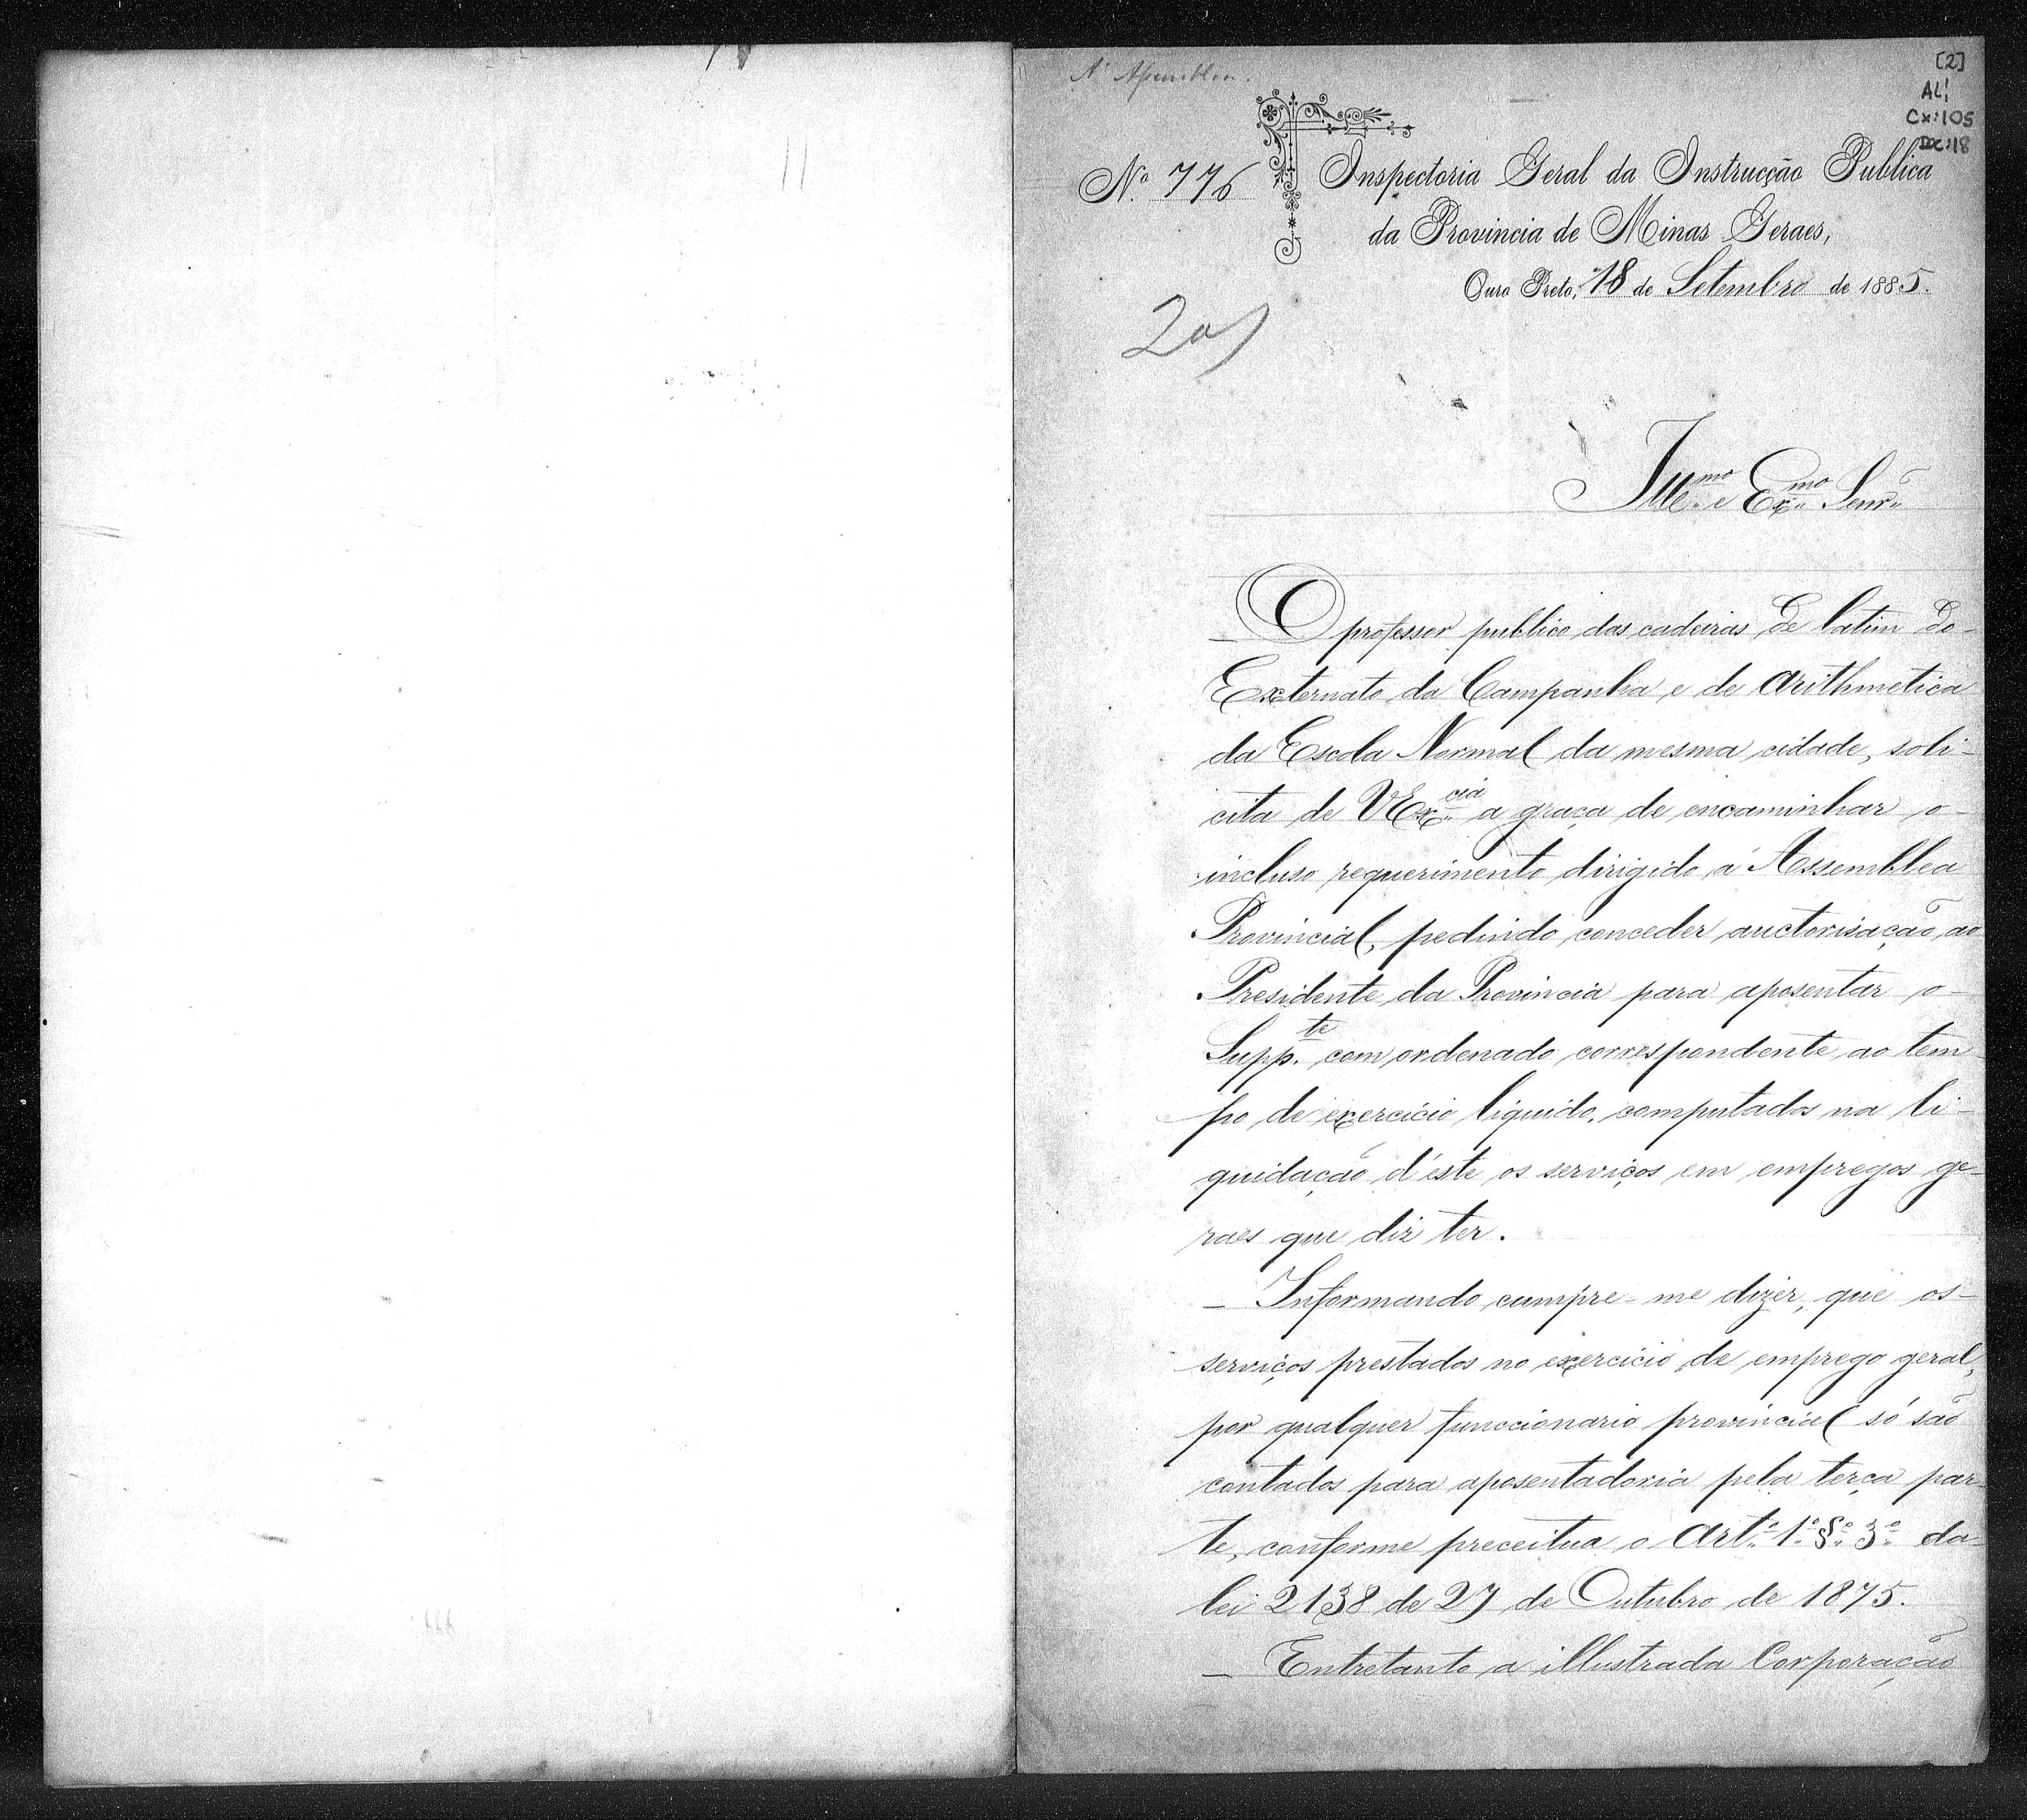 A' Assemblea.
[2]
AL!
Cx:105
Dc:18
Nº 776
Inspectoria Geral da Instrucção Publica
da Provincia de Minas Geraes,
Ouro Preto, 18 de Setembro de 1885.
Illmo e Exmo Senr.
O professor publico das cadeiras de latim do
Externato da Campanha e de Arithmetica
da Escola Normal da mesma cidade, soli-
cita de VExcia a graça de encaminhar o
incluso requerimento dirigido á Assemblea
Provincial, pedindo conceder auctorisação ao
Presidente da Provincia para aposentar o
Suppte com ordenado correspondente ao tem
po de exercicio liquido, computados na li-
quidação d'este os serviços em empregos ge-
raes que diz ter.
– Informando cumpre-me dizer, que os
serviços prestados no exercicio de emprego geral,
por qualquer funccionario provincial só são
contados para aposentadoria pela terça par-
te, conforme preceitua o Artº 1º § 3º da
lei 2138 de 27 de Outubro de 1875.
– Entretanto a illustrada Corporação